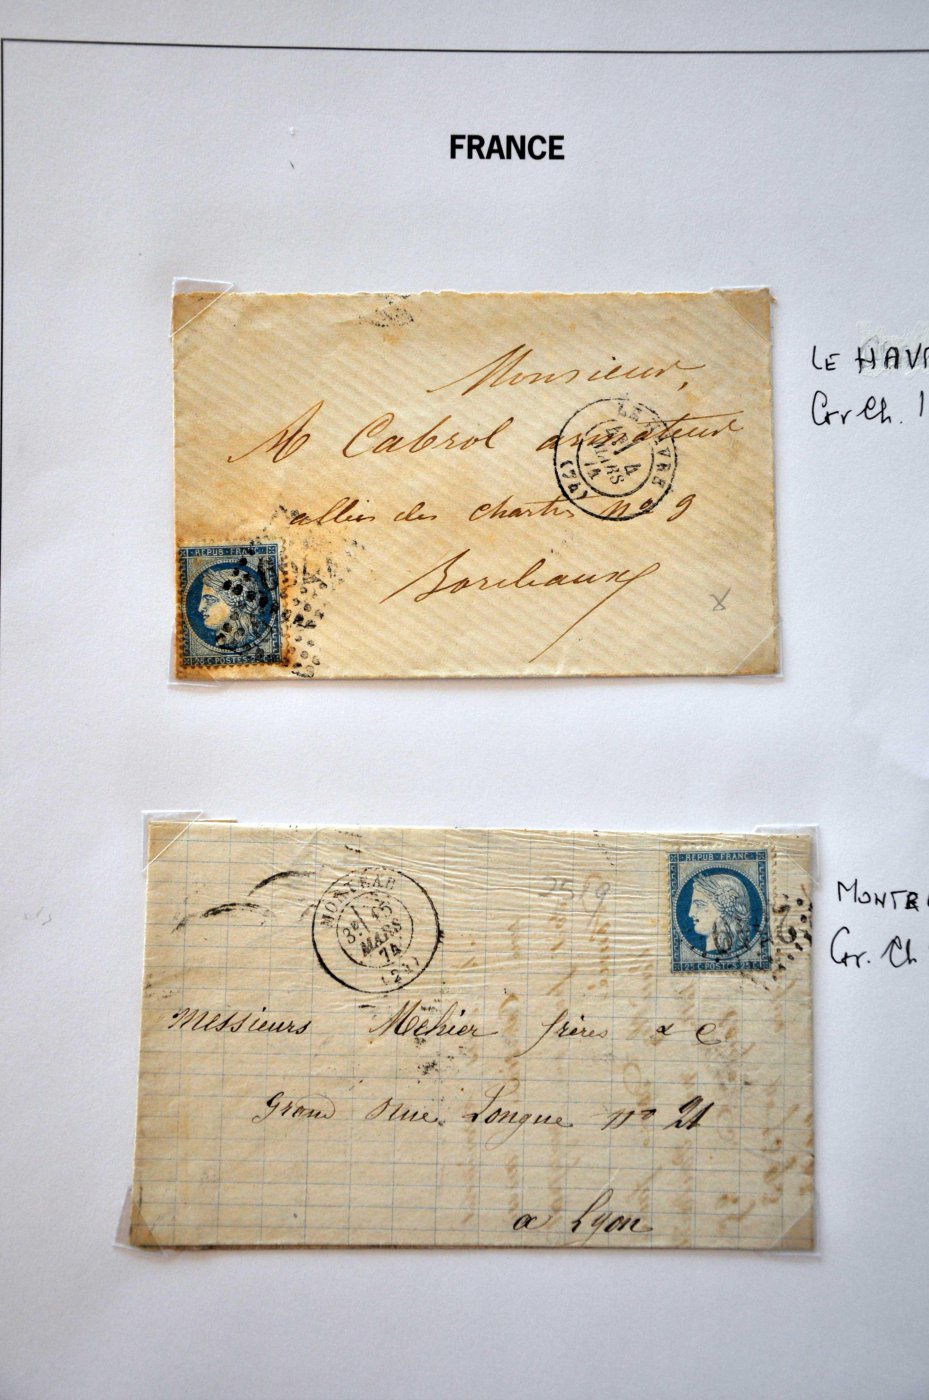 FRANCE
Monsieur,
A Cabrol armateur
allées des chartres nº 9
Bordeaux
LE HAVRE
4
MARS
74
(74)
REPUB FRANC
25 C POSTES 25 C
LE HAVR
Gr Ch. 1
MONTEAU
3E
MARS
74
2589
REPUB FRANC
25 C POSTES 25 C
Messieurs Mehier frères & C
Grand rue Longue nº 21
a Lyon
MONTR
Gr. Ch